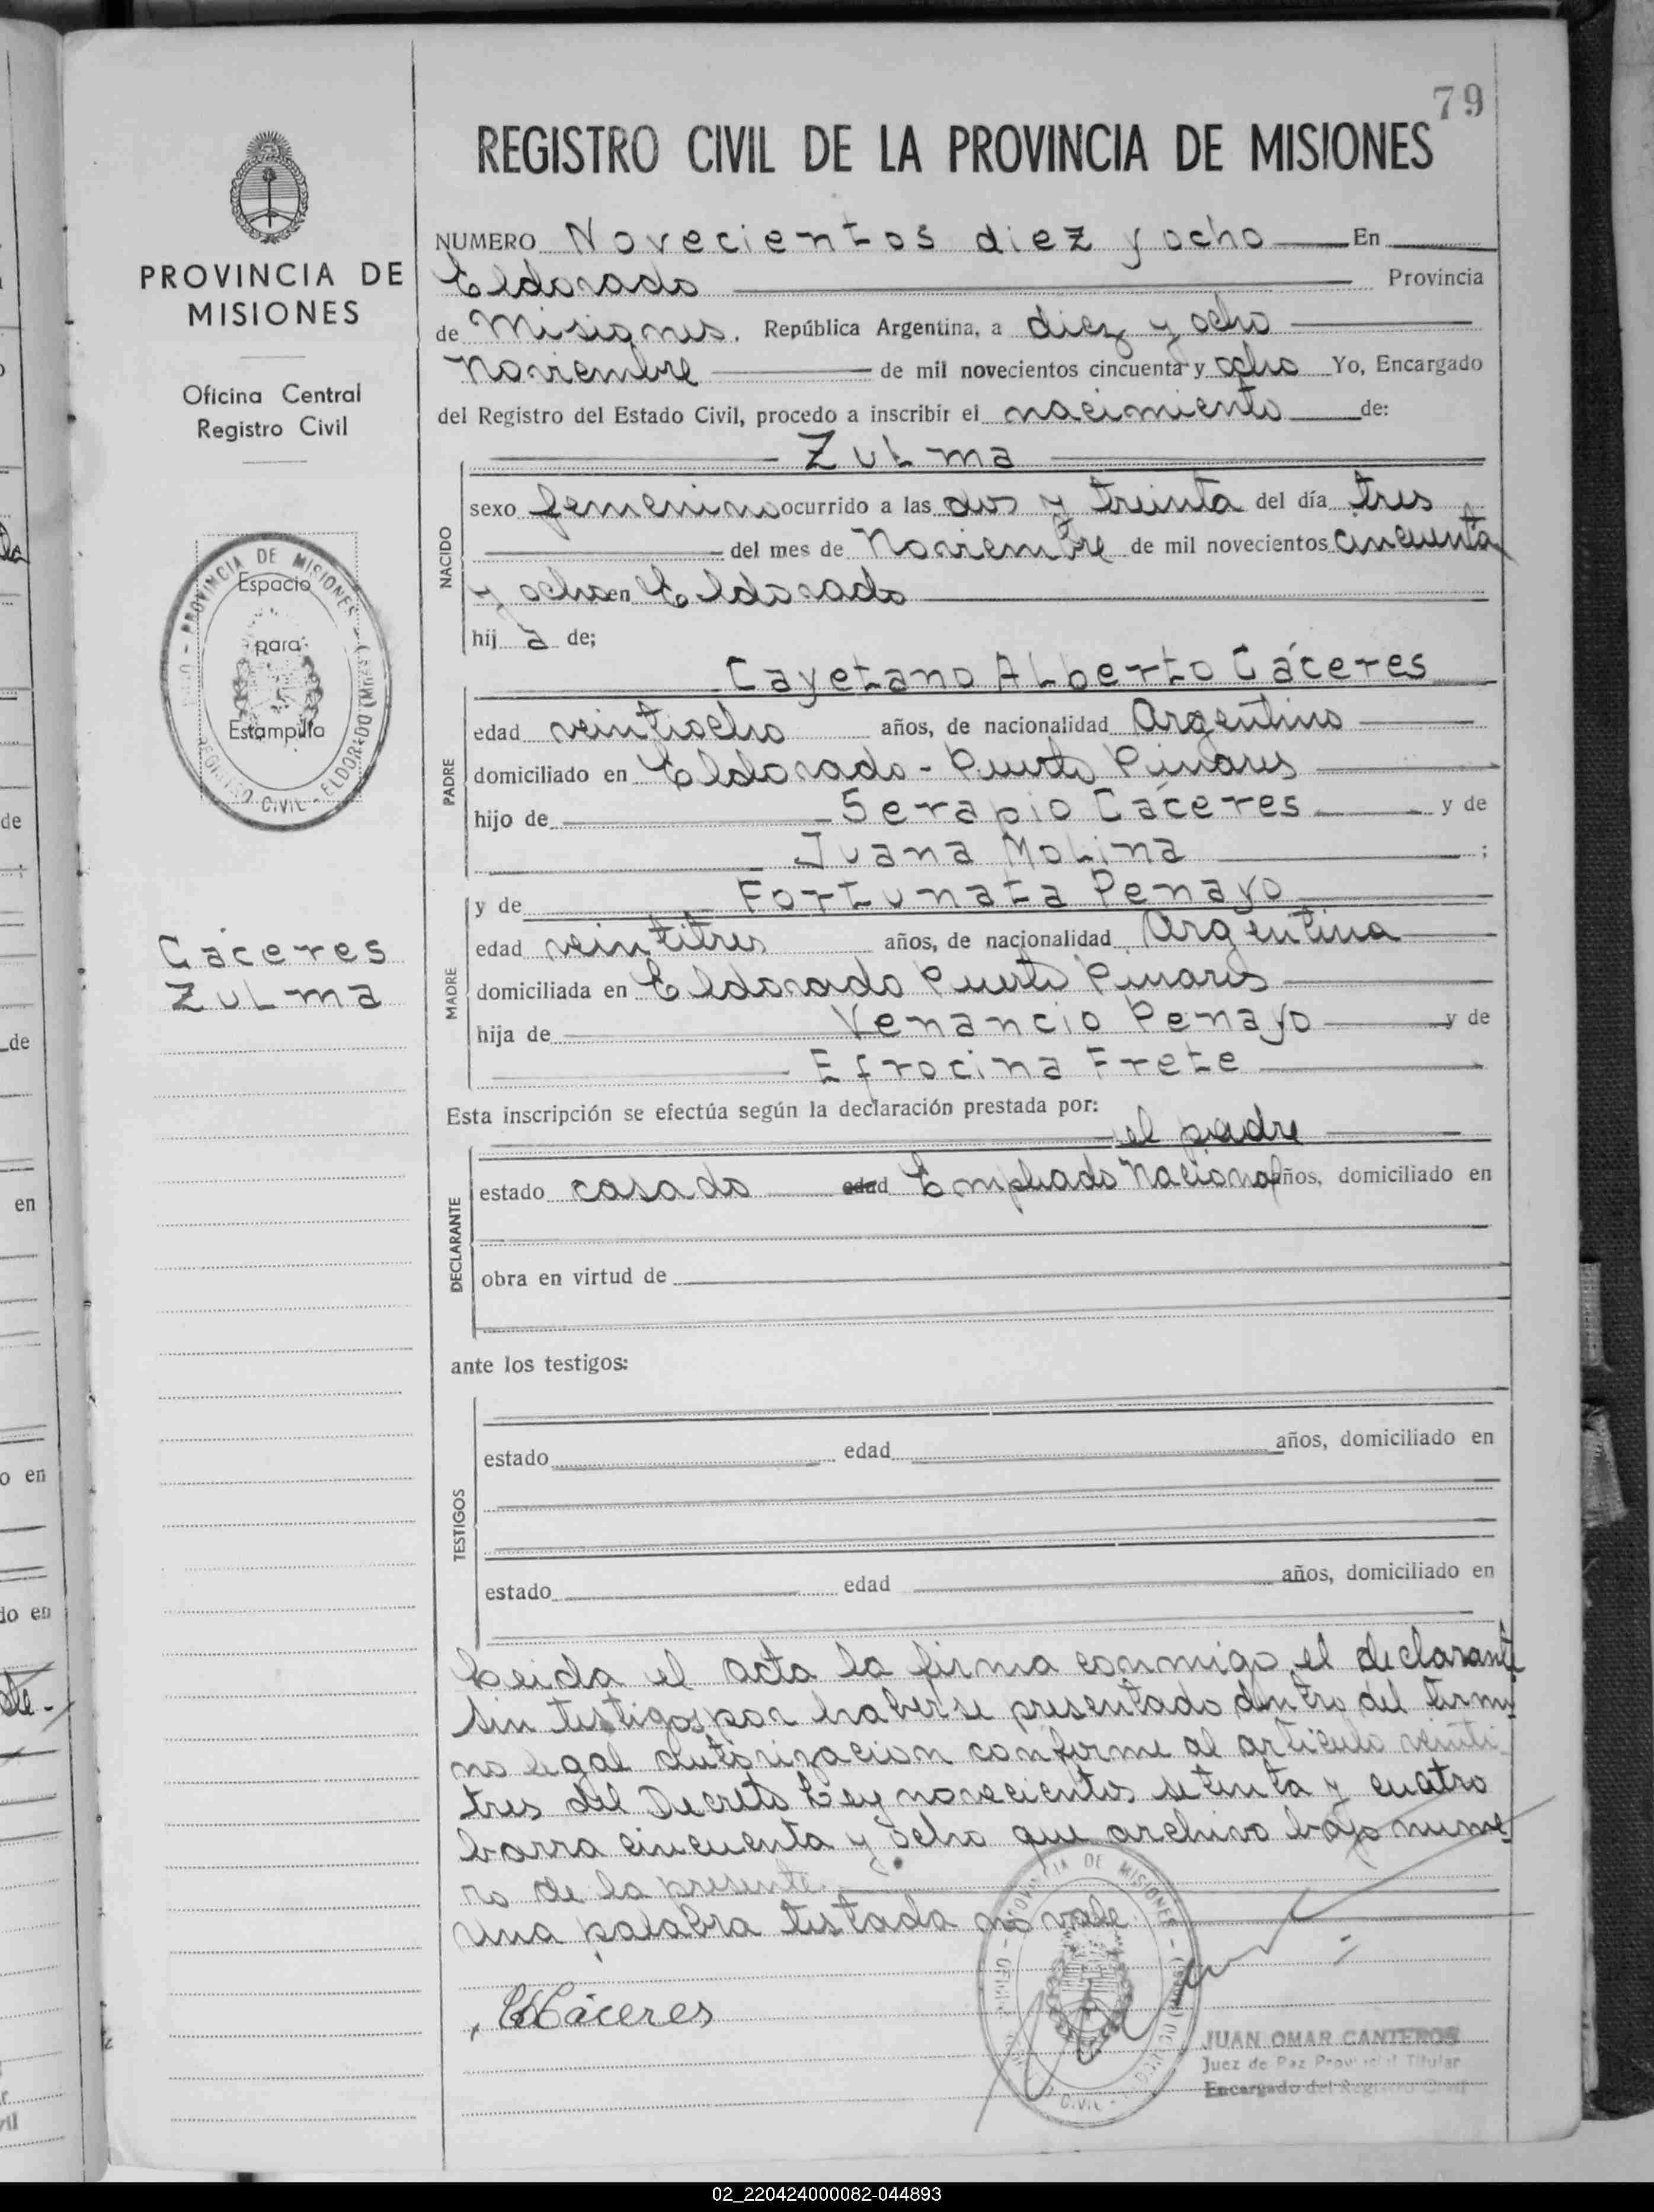 79
REGISTRO CIVIL DE LA PROVINCIA DE MISIONES
PROVINCIA DE
MISIONES
Oficina Central
Registro Civil
PROVINCIA DE MISIONES
REGISTRO CIVIL - ELDORADO (Mnes.)
Espacio
para
Estampilla
Cáceres
Zulma
NUMERO Novecientos diez y ocho En
Eldorado Provincia
de Misiones. República Argentina, a diez y ocho
Noviembre de mil novecientos cincuenta y ocho Yo, Encargado
del Registro del Estado Civil, procedo a inscribir el nacimiento de:
Zulma
NACIDO
sexo femenino ocurrido a las dos y treinta del día tres
del mes de Noviembre de mil novecientos cincuenta
y ocho en Eldorado
hij a de;
Cayetano Alberto Cáceres
PADRE
edad veintiocho años, de nacionalidad Argentino
domiciliado en Eldorado - Puerto Pinares
hijo de Serapio Cáceres y de
Juana Molina ;
y de Fortunata Penayo
MADRE
edad veintitres años, de nacionalidad Argentina
domiciliada en Eldorado Puerto Pinares
hija de Venancio Penayo y de
Efrocina Frete
Esta inscripción se efectúa según la declaración prestada por:
el padre
DECLARANTE
estado casado edad Empleado Nacional años, domiciliado en
obra en virtud de
ante los testigos:
TESTIGOS
estado edad años, domiciliado en
estado edad años, domiciliado en
Leida el acta la firma conmigo el declarante
sin testigos por haberse presentado dentro del termi
no legal autorizacion conforme al articulo veinti
tres del Decreto Ley novecientos setenta y cuatro
barra cincuenta y ocho que archivo bajo nume
ro de la presente.
Una palabra testada no vale
Cáceres
PROVINCIA DE MISIONES
CIVIL
JUAN OMAR CANTEROS
Juez de Paz Provincial Titular
Encargado del Registro Civil
de
en
o en
do en
02_220424000082-044893